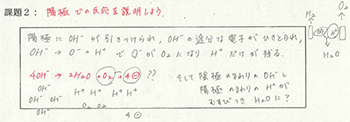 課題2: 陽極での反応を説明しよう。
陽極にOH⁻が引きつけられ、OH⁻の余分な電子がひきとられ、
OH⁻ → O⁻ + H⁺ で O⁻がO₂になり H⁺だけが残る。
4OH⁻ → 2H₂O + O₂ + 4⊖ ??
そして陰極のまわりのOH⁻と
陽極のまわりのH⁺が
むすびつき H₂Oに?
OH⁻ OH⁻
OH⁻ OH⁻
H⁺ H⁺ H⁺ H⁺
O₂ O₂
4⊖
H₂
O₂
H⁺
H₂O